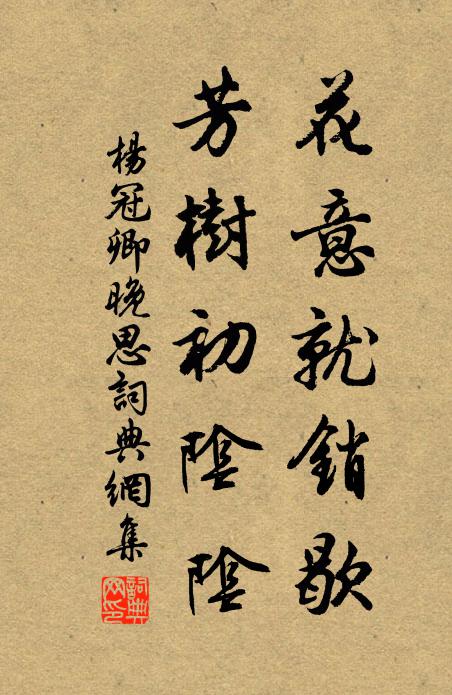 花意就銷歇
芳樹初陰陰
楊冠卿晚思詞典網集
詞典網印